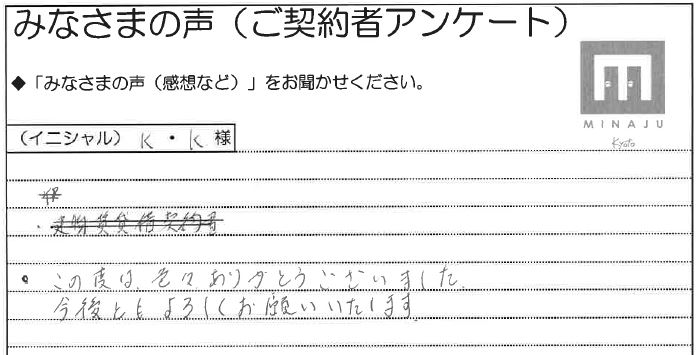 みなさまの声（ご契約者アンケート）
◆「みなさまの声（感想など）」をお聞かせください。
MINAJU
Kyoto
（イニシャル） K・K 様
・建物賃貸借契約書
・この度は、色々ありがとうございました。
今後ともよろしくお願いいたします